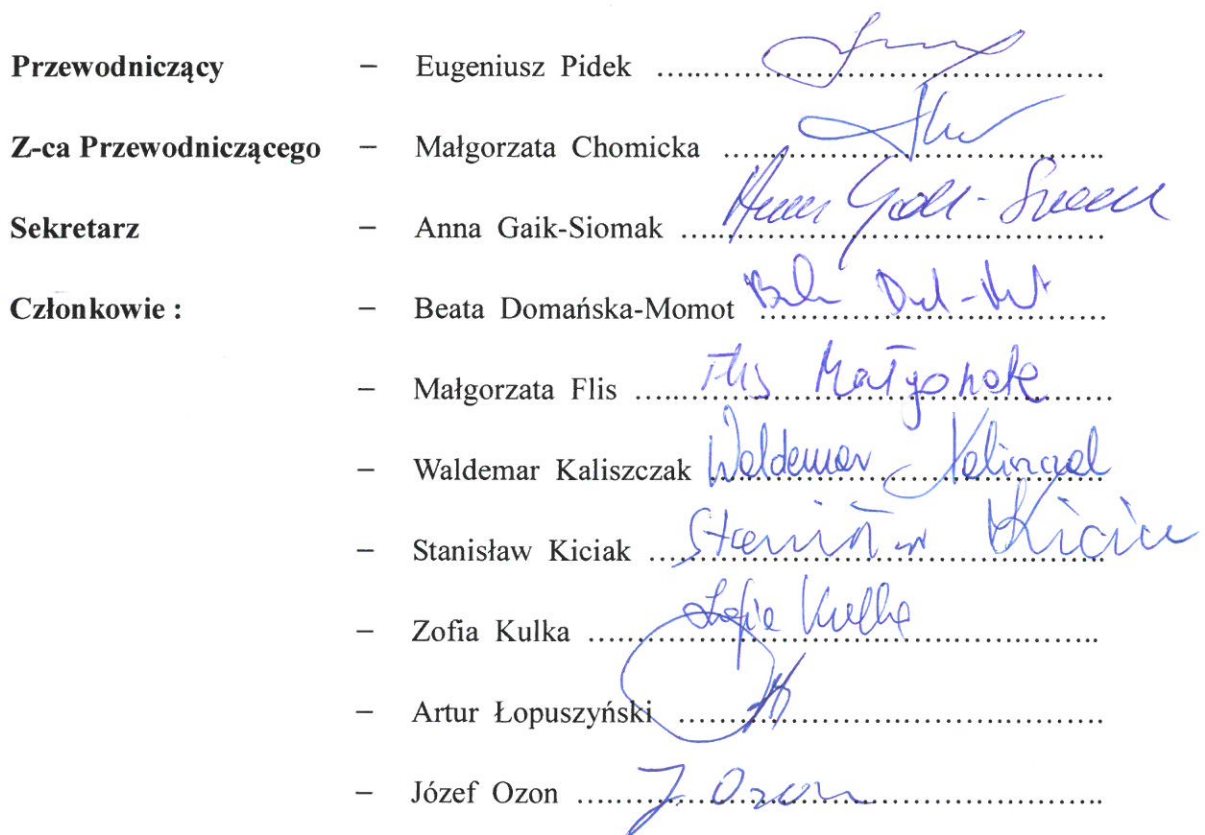 Przewodniczący – Eugeniusz Pidek ........................................
Z-ca Przewodniczącego – Małgorzata Chomicka ........................................
Sekretarz – Anna Gaik-Siomak ........................................
Członkowie : – Beata Domańska-Momot ........................................
– Małgorzata Flis ........................................ Flis Małgorzata
– Waldemar Kaliszczak Waldemar Kaliszczak
– Stanisław Kiciak ........................................ Stanisław Kiciak
– Zofia Kulka ........................................ Zofia Kulka
– Artur Łopuszyński ........................................
– Józef Ozon ........................................ J. Ozon